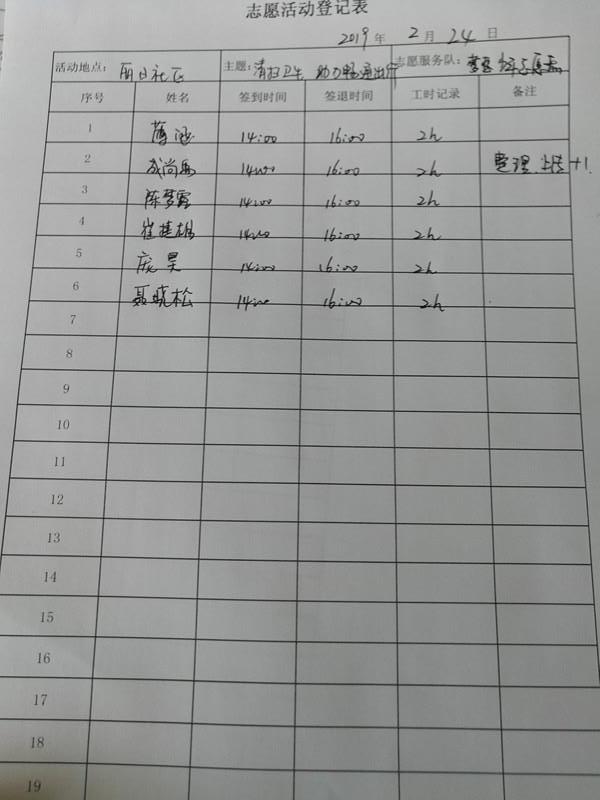 志愿活动登记表
2019 年 2 月 24 日
活动地点： 丽日社区 主题：清扫卫生 助力畅通出行 志愿服务队：
序号 姓名 签到时间 签退时间 工时记录 备注
1 薄涵 14:00 16:00 2h
2 成尚禹 14:00 16:00 2h 整理 上传 +1
3 陈梦露 14:00 16:00 2h
4 崔 14:00 16:00 2h
5 庞昊 14:00 16:00 2h
6 聂晓松 14:00 16:00 2h
7
8
9
10
11
12
13
14
15
16
17
18
19